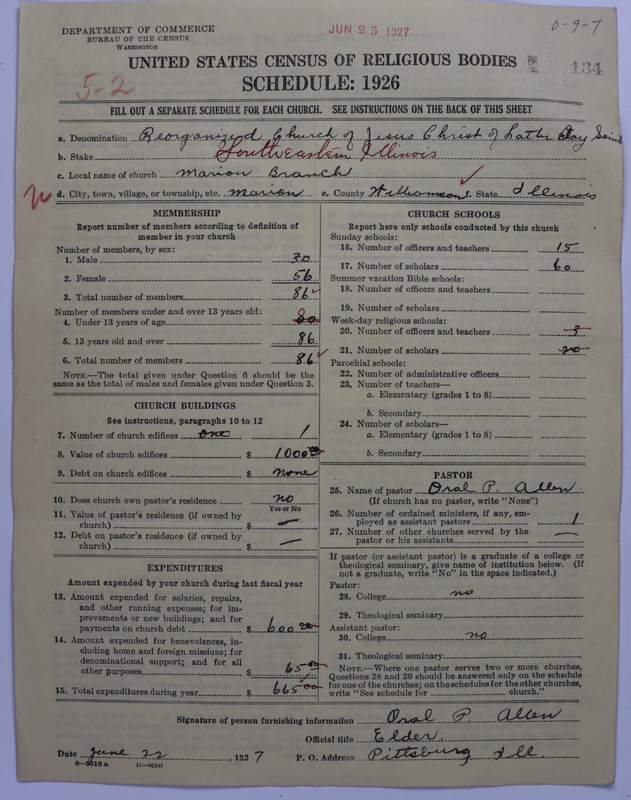 DEPARTMENT OF COMMERCE
BUREAU OF THE CENSUS
WASHINGTON
JUN 25 1927
0-9-7
UNITED STATES CENSUS OF RELIGIOUS BODIES
134
5-2
SCHEDULE: 1926
FILL OUT A SEPARATE SCHEDULE FOR EACH CHURCH. SEE INSTRUCTIONS ON THE BACK OF THIS SHEET
a. Denomination Reorganized Church of Jesus Christ of Latter Day Saint
b. Stake Southeastern Illinois
c. Local name of church Marion Branch
d. City, town, village, or township, etc. Marion e. County Williamson f. State Illinois
MEMBERSHIP
Report number of members according to definition of
member in your church
Number of members, by sex:
1. Male 30
2. Female 56
3. Total number of members 86
Number of members under and over 13 years old:
4. Under 13 years of age
5. 13 years old and over 86
6. Total number of members 86
NOTE.—The total given under Question 6 should be
same as the total of males and females given under Question 3.
CHURCH BUILDINGS
See instructions, paragraphs 10 to 12
7. Number of church edifices one 1
8. Value of church edifices $ 1000 00
9. Debt on church edifices $ none
10. Does church own pastor's residence no
Yes or No
11. Value of pastor's residence (if owned by
church) $ —
12. Debt on pastor's residence (if owned by
church) $ —
EXPENDITURES
Amount expended by your church during last fiscal year
13. Amount expended for salaries, repairs,
and other running expenses; for im-
provements or new buildings; and for
payments on church debt $ 600 00
14. Amount expended for benevolences, in-
cluding home and foreign missions; for
denominational support; and for all
other purposes $ 65 00
15. Total expenditures during year $ 665 00
CHURCH SCHOOLS
Report here only schools conducted by this church
Sunday schools:
16. Number of officers and teachers 15
17. Number of scholars 60
Summer vacation Bible schools:
18. Number of officers and teachers
19. Number of scholars
Week-day religious schools:
20. Number of officers and teachers 3
21. Number of scholars 20
Parochial schools:
22. Number of administrative officers
23. Number of teachers—
a. Elementary (grades 1 to 8)
b. Secondary
24. Number of scholars—
a. Elementary (grades 1 to 8)
b. Secondary
PASTOR
25. Name of pastor Oral P. Allen
(If church has no pastor, write "None")
26. Number of ordained ministers, if any, em-
ployed as assistant pastors 1
27. Number of other churches served by the
pastor or his assistants —
If pastor (or assistant pastor) is a graduate of a college or
theological seminary, give name of institution below. (If
not a graduate, write "No" in the space indicated.)
Pastor:
28. College no
29. Theological seminary
Assistant pastor:
30. College no.
31. Theological seminary
NOTE.—Where one pastor serves two or more churches,
Questions 28 and 29 should be answered only on the schedule
for one of the churches; on the schedules for the other churches,
write "See schedule for church."
Signature of person furnishing information Oral P. Allen
Official title Elder.
Date June 22, 1927 P. O. Address Pittsburg Ill
8—5518 a 11—9024f